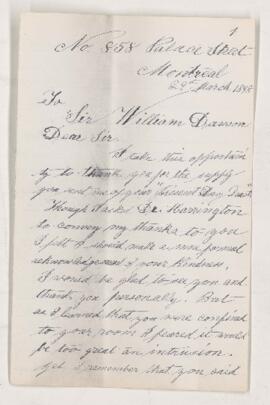 1
No. 858 Palace Street
Montreal
29th March 1898
To
Sir William Dawson
Dear Sir.
I take this opportuni
ty to thank you for the supply
you send me of your "Present Day Tracts"
Though I asked Dr. Harrington
to convey my thanks to you
I felt I should make a more formal
acknowledgement of your kindness.
I would be glad to see you and
thank you personally. But
as I learned that you were confined
to your room I feared it would
be too great an intrusion.
Yet I remember that you said